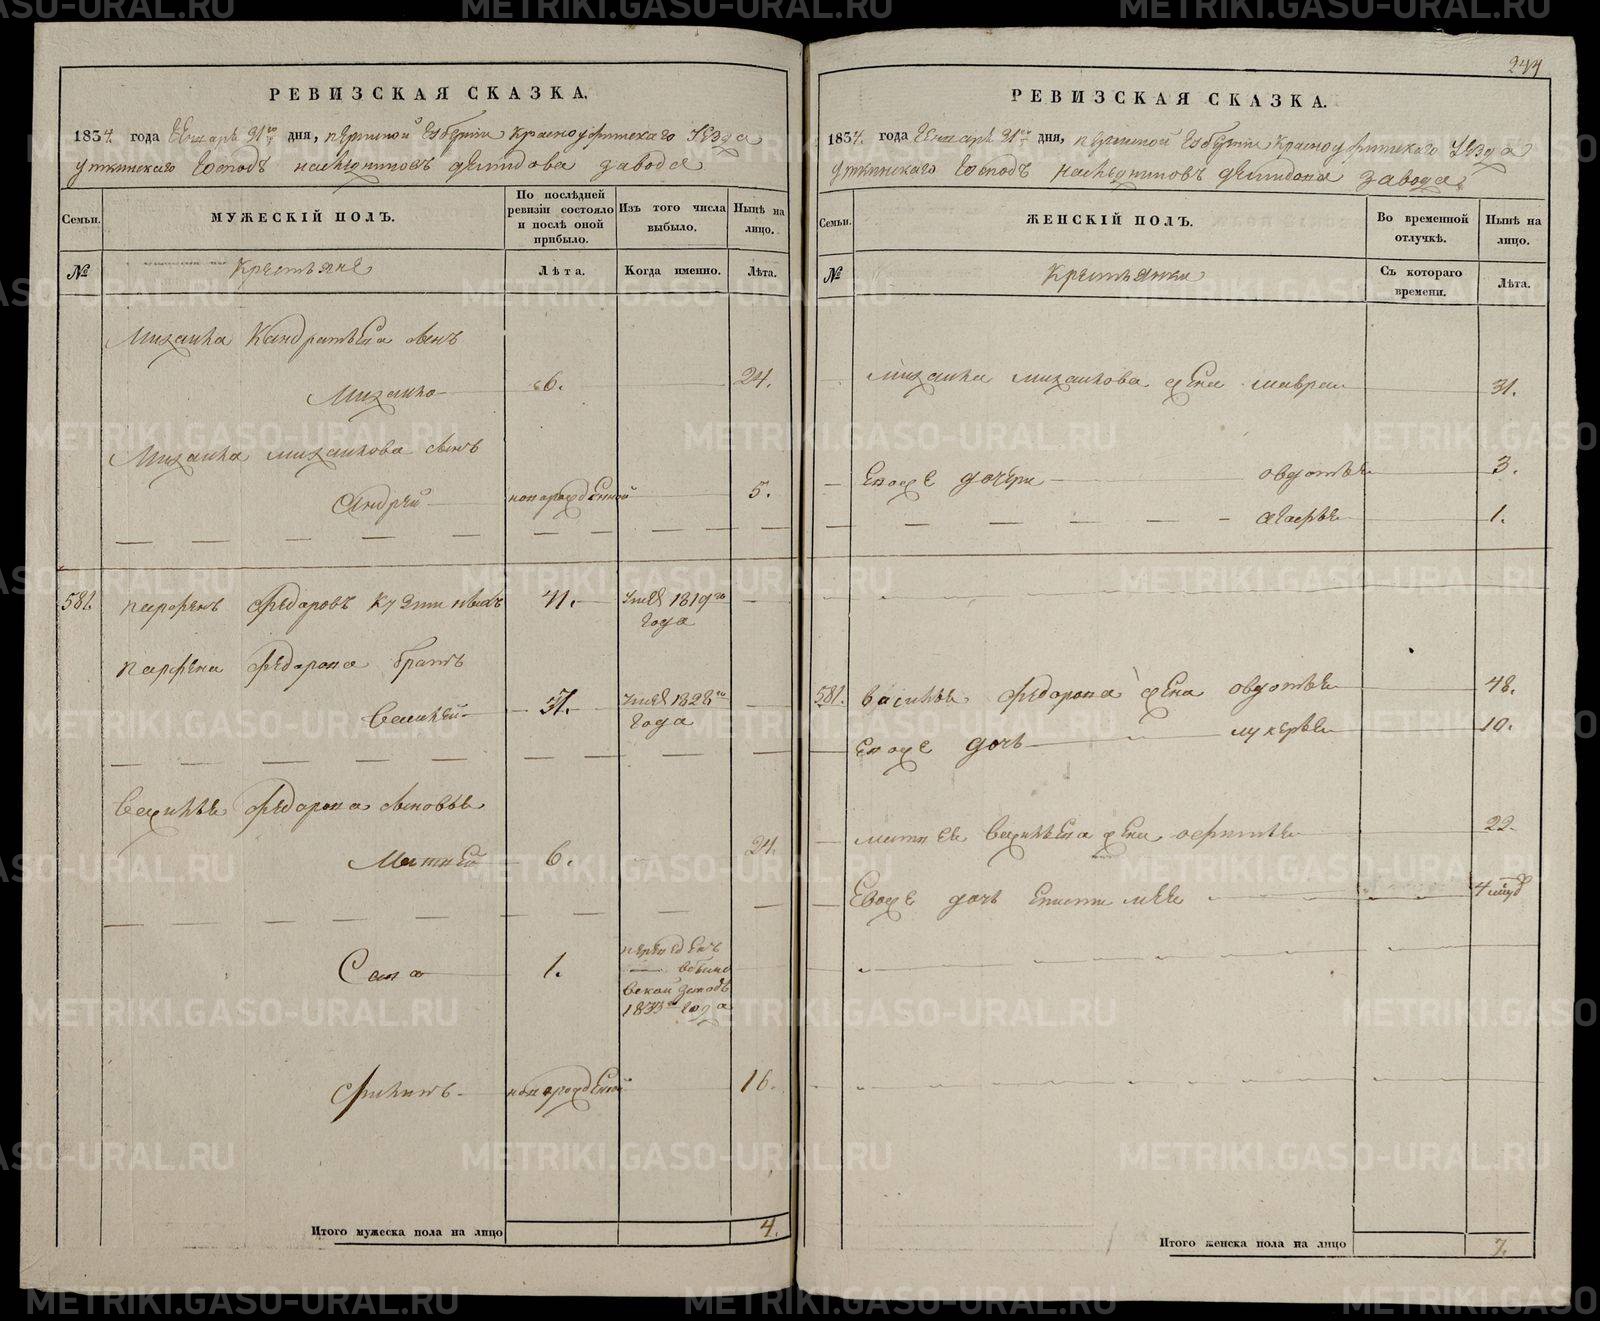 РЕВИЗСКАЯ СКАЗКА.
1834 года Генваря 31го дня, пермской Губернiи Красноуфимскаго уезда
уткинскаго Господъ наследниковъ демидова завода
Семьи.
МУЖЕСКIЙ ПОЛЪ.
По послѣдней ревизiи состояло и послѣ оной прибыло.
Изъ того числа выбыло.
Нынѣ на лицо.
№
Крестьяне
Лѣта.
Когда именно.
Лѣта.
Михаила Кандратьева сынъ
Михаило 6. 24.
Михаила михаилова сынъ
Андрей новорожденной 5.
581. парфенъ Федоровъ 41. умеръ 1819го
года
парфена Федорова братъ
Василей 31. умеръ 1828го
года
Василья Федорова сыновья
Матвей 6. 24.
Сава 1.
1833го года
Филипъ новорожденной 16.
Итого мужеска пола на лицо 4.
244
РЕВИЗСКАЯ СКАЗКА.
1834. года Генваря 31го дня, пермской Губернiи Красноуфимскаго уезда
уткинскаго Господъ наследниковъ демидова завода
Семьи.
ЖЕНСКIЙ ПОЛЪ.
Во временной отлучкѣ.
Нынѣ на лицо.
№
Крестьянки
Съ котораго времени.
Лѣта.
михаила михаилова жена мавра 31.
Евоже дочери овдотья 3.
1.
581. василья Федорова жена овдотья 48.
Евоже дочь лукерья 10.
матвея Васильева жена 22.
Евоже дочь 4
Итого женска пола на лицо 7.
METRIKI.GASO-URAL.RU